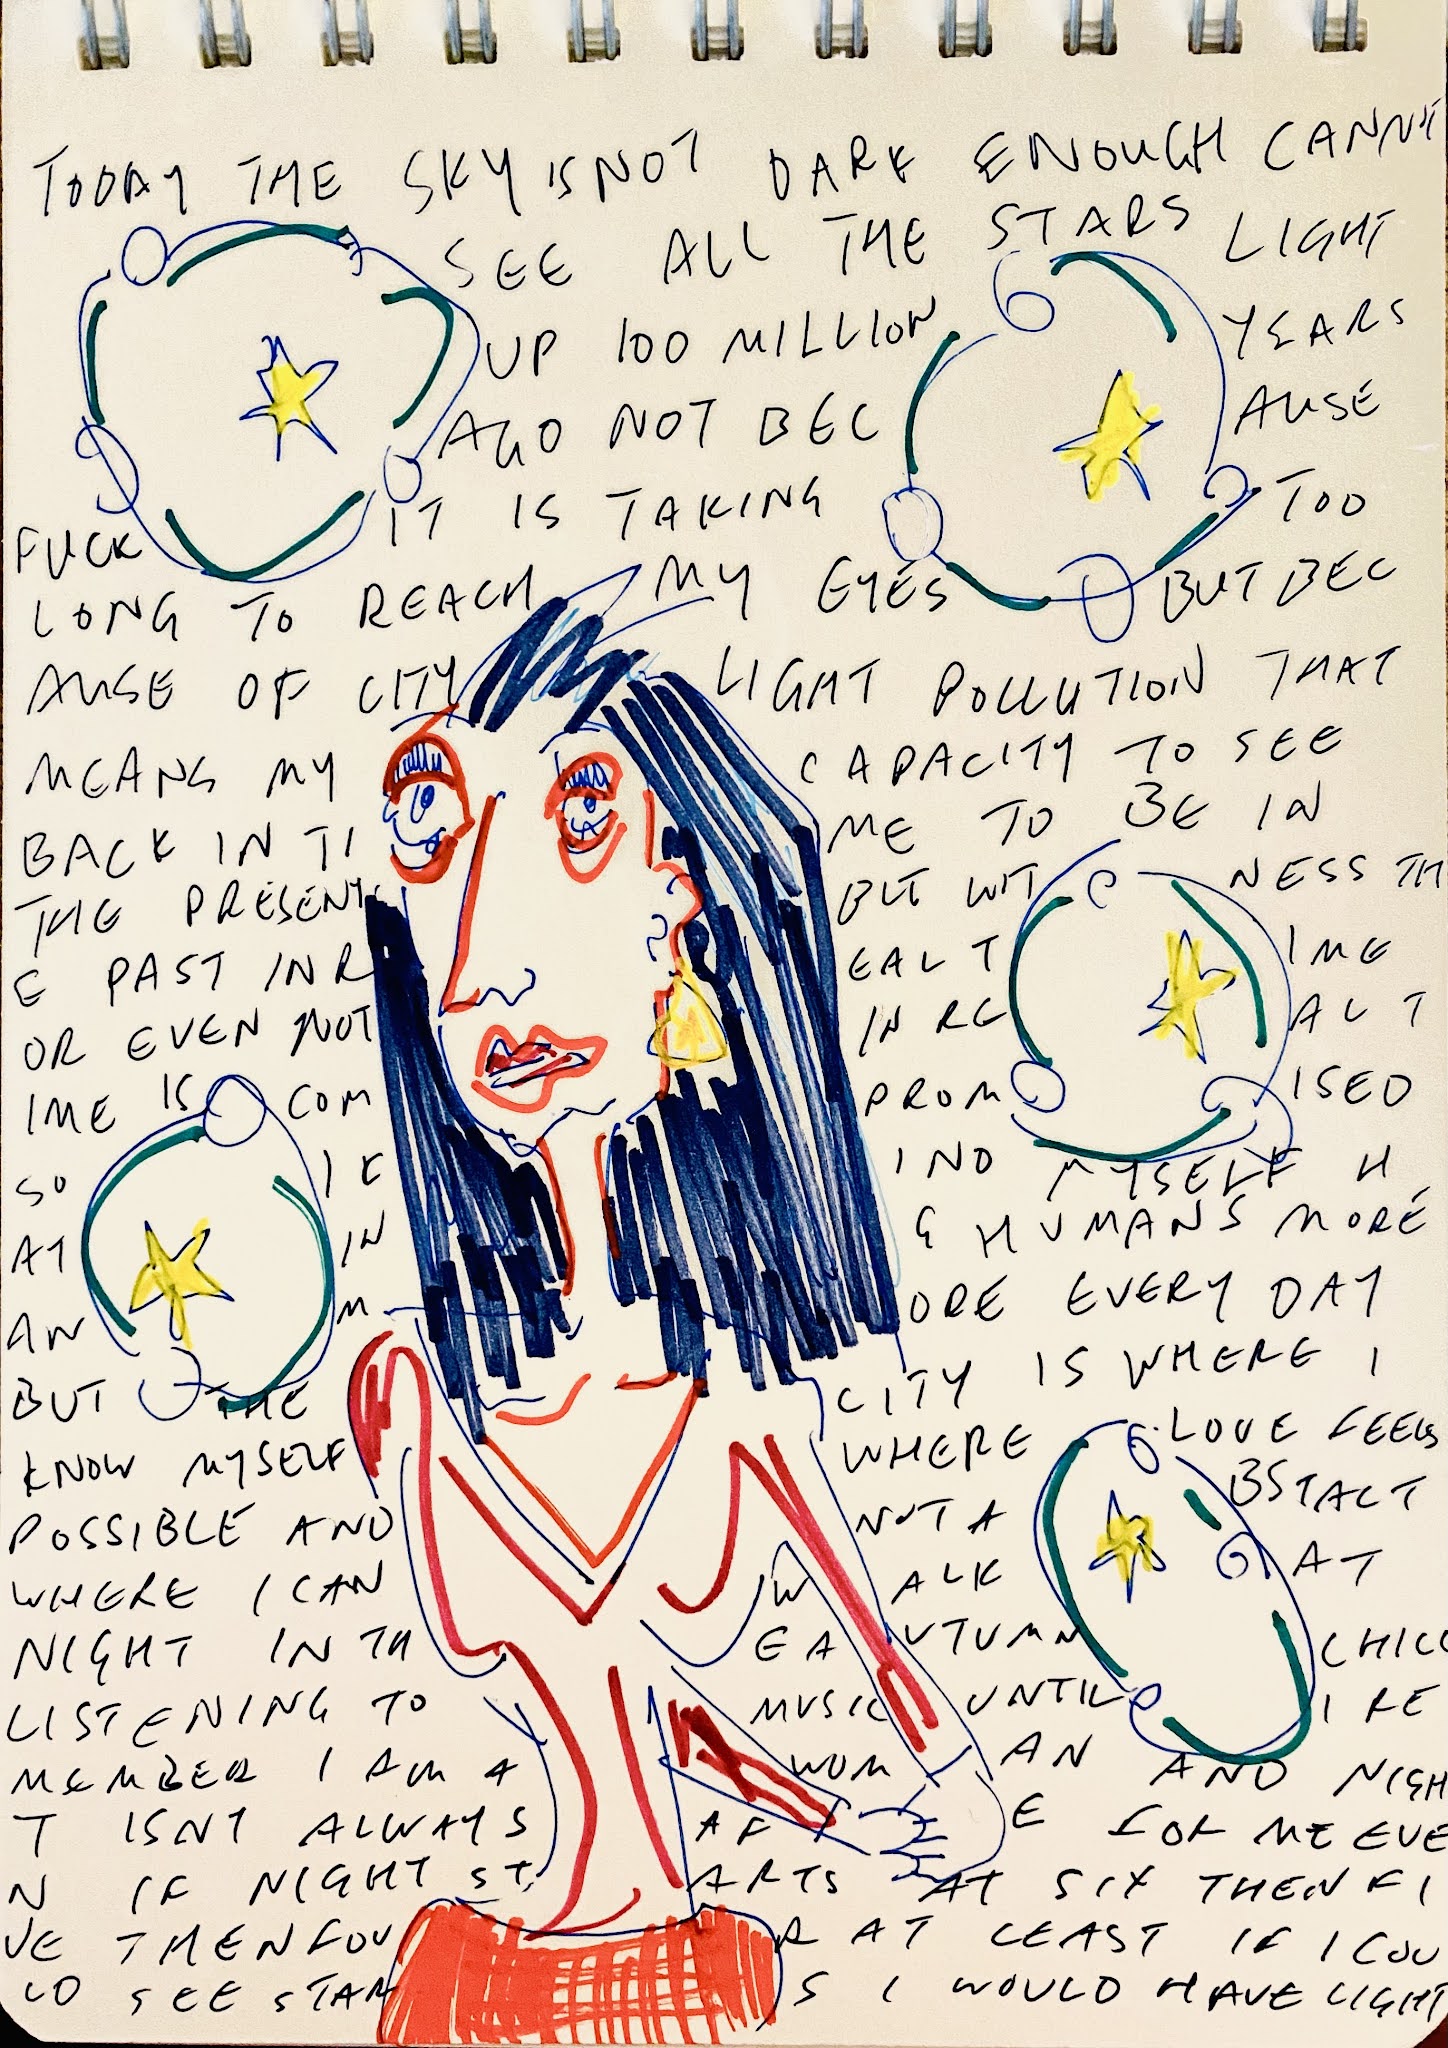 TODAY THE SKY IS NOT DARK ENOUGH CANNOT
SEE ALL THE STARS LIGHT
UP 100 MILLION YEARS
AGO NOT BEC AUSE
FUCK IT IS TAKING TOO
LONG TO REACH MY EYES BUT BEC
AUSE OF CITY LIGHT POLLUTION THAT
MEANS MY CAPACITY TO SEE
BACK IN TI ME TO BE IN
THE PRESENT BUT WIT NESS TH
E PAST IN R EAL T IME
OR EVEN NOT IN RE AL T
IME IS COM PROM ISED
SO I K IND MYSELF H
AT IN G HUMANS MORE
AN M ORE EVERY DAY
BUT THE CITY IS WHERE I
KNOW MYSELF WHERE LOVE FEELS
POSSIBLE AND NOT A BSTACT
WHERE I CAN W ALK AT
NIGHT IN TH E A UTUMN CHILL
LISTENING TO MUSIC UNTIL I RE
MEMBER I AM A WOM AN AND NIGH
T ISNT ALWAYS AF E FOR ME EVE
N IF NIGHT ST ARTS AT SIX THEN FI
VE THEN FOU R AT LEAST IF I COU
LD SEE STAR S I WOULD HAVE LIGHT